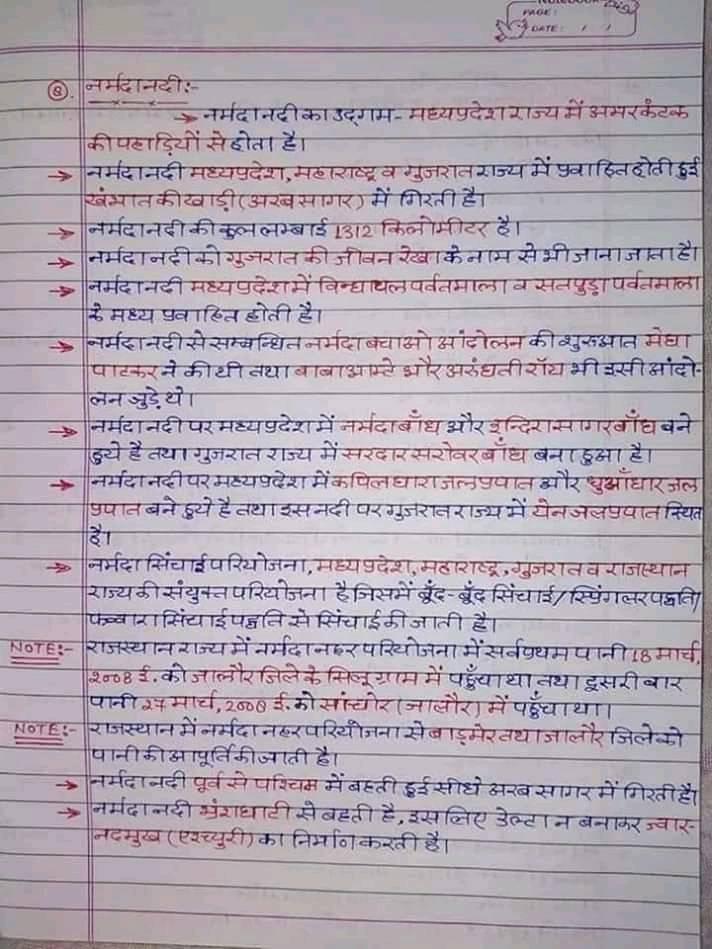 PAGE:
DATE: / /
⑧. नर्मदा नदी:-
→ नर्मदा नदी का उद्गम - मध्यप्रदेश राज्य में अमरकंटक
की पहाड़ियों से होता है।
→ नर्मदा नदी मध्यप्रदेश, महाराष्ट्र व गुजरात राज्य में प्रवाहित होती हुई
खंभात की खाड़ी (अरब सागर) में गिरती है।
→ नर्मदा नदी की कुल लम्बाई 1312 किलोमीटर है।
→ नर्मदा नदी को गुजरात की जीवन रेखा के नाम से भी जाना जाता है।
→ नर्मदा नदी मध्यप्रदेश में विन्धयाचल पर्वतमाला व सतपुड़ा पर्वतमाला
के मध्य प्रवाहित होती है।
→ नर्मदा नदी से सम्बन्धित नर्मदा बचाओ आंदोलन की शुरुआत मेघा
पाटकर ने की थी तथा बाबा आम्टे और अरुंधती रॉय भी इसी आंदो-
लन जुड़े थे।
→ नर्मदा नदी पर मध्यप्रदेश में नर्मदा बाँध और इन्दिरा सागर बाँध बने
हुये है तथा गुजरात राज्य में सरदार सरोवर बाँध बना हुआ है।
→ नर्मदा नदी पर मध्यप्रदेश में कपिल धारा जलप्रपात और धुआँधार जल
प्रपात बने हुये है तथा इस नदी पर गुजरात राज्य में येन जलप्रपात स्थित
है।
→ नर्मदा सिंचाई परियोजना, मध्यप्रदेश, महाराष्ट्र, गुजरात व राजस्थान
राज्य की संयुक्त परियोजना है जिसमें बूँद-बूँद सिंचाई/स्प्रिंगलर पद्धति/
फव्वारा सिंचाई पद्धति से सिंचाई की जाती है।
NOTE:- राजस्थान राज्य में नर्मदा नहर परियोजना में सर्वप्रथम पानी 18 मार्च,
2008 ई. को जालौर जिले के सिलू ग्राम में पहुँचा था तथा दूसरी बार
पानी 27 मार्च, 2008 ई. को सांचोर (जालौर) में पहुँचा था।
NOTE:- राजस्थान में नर्मदा नहर परियोजना से बाड़मेर तथा जालौर जिले को
पानी की आपूर्ति की जाती है।
→ नर्मदा नदी पूर्व से पश्चिम में बहती हुई सीधे अरब सागर में गिरती है।
→ नर्मदा नदी भ्रंशघाटी से बहती है, इसलिए डेल्टा न बनाकर ज्वार-
नदमुख (एश्च्युरी) का निर्माण करती है।